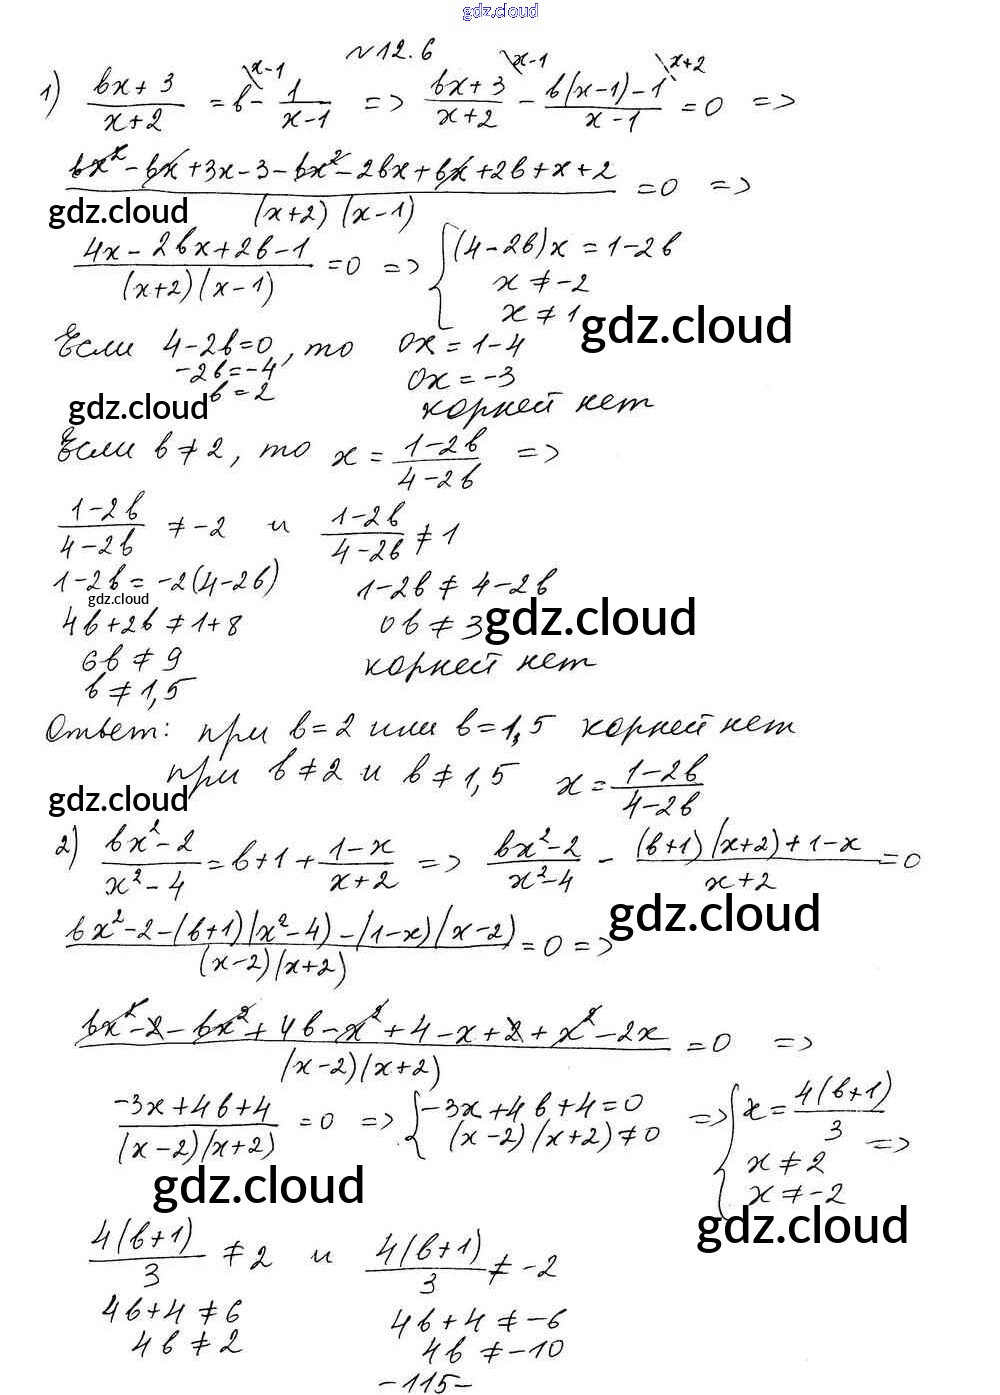 gdz.cloud
№12.6
1) (bx+3)/(x+2) = b^{\x-1} - 1/(x-1) => (bx+3)^{\x-1}/(x+2) - (b(x-1)-1)^{\x+2}/(x-1) = 0 =>
(bx²-bx+3x-3-bx²-2bx+bx+2b+x+2)/((x+2)(x-1)) = 0 =>
gdz.cloud
(4x-2bx+2b-1)/((x+2)(x-1)) = 0 => { (4-2b)x = 1-2b
x ≠ -2
x ≠ 1
gdz.cloud
Если 4-2b=0, то 0x = 1-4
-2b=-4 0x = -3
b = 2 корней нет
gdz.cloud
Если b ≠ 2, то x = (1-2b)/(4-2b) =>
(1-2b)/(4-2b) ≠ -2 и (1-2b)/(4-2b) ≠ 1
1-2b = -2(4-2b) 1-2b ≠ 4-2b
gdz.cloud
4b+2b ≠ 1+8 0b ≠ 3
gdz.cloud
6b ≠ 9 корней нет
b ≠ 1,5
Ответ: при b=2 или b=1,5 корней нет
при b≠2 и b≠1,5 x = (1-2b)/(4-2b)
gdz.cloud
2) (bx²-2)/(x²-4) = b+1+(1-x)/(x+2) => (bx²-2)/(x²-4) - ((b+1)(x+2)+1-x)/(x+2) = 0
gdz.cloud
(bx²-2-(b+1)(x²-4)-(1-x)(x-2))/((x-2)(x+2)) = 0 =>
(bx²-2-bx²+4b-x²+4-x+2+x²-2x)/((x-2)(x+2)) = 0 =>
(-3x+4b+4)/((x-2)(x+2)) = 0 => { -3x+4b+4=0 => { x = 4(b+1)/3
(x-2)(x+2)≠0 x ≠ 2 =>
x ≠ -2
gdz.cloud
gdz.cloud
4(b+1)/3 ≠ 2 и 4(b+1)/3 ≠ -2
4b+4 ≠ 6 4b+4 ≠ -6
4b ≠ 2 4b ≠ -10
-115-